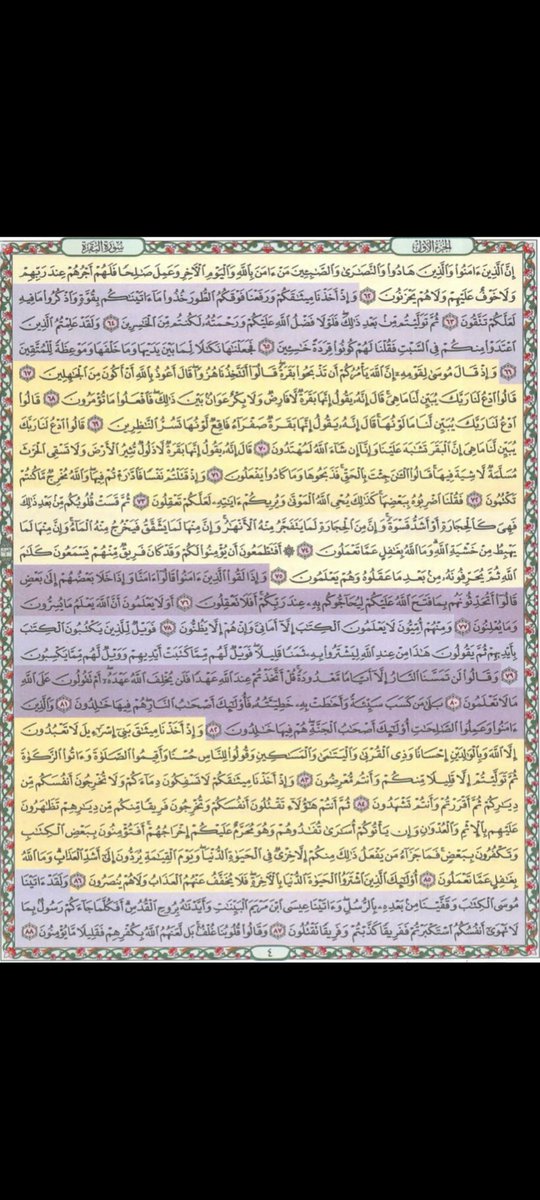 الجزء الأول
سورة البقرة
إِنَّ الَّذِينَ ءَامَنُوا وَالَّذِينَ هَادُوا وَالنَّصَٰرَىٰ وَالصَّٰبِـِٔينَ مَنْ ءَامَنَ بِاللَّهِ وَالْيَوْمِ الْآخِرِ وَعَمِلَ صَٰلِحًا فَلَهُمْ أَجْرُهُمْ عِندَ رَبِّهِمْ
وَلَا خَوْفٌ عَلَيْهِمْ وَلَا هُمْ يَحْزَنُونَ ٦٢ وَإِذْ أَخَذْنَا مِيثَٰقَكُمْ وَرَفَعْنَا فَوْقَكُمُ الطُّورَ خُذُوا مَا ءَاتَيْنَٰكُم بِقُوَّةٍ وَاذْكُرُوا مَا فِيهِ
لَعَلَّكُمْ تَتَّقُونَ ٦٣ ثُمَّ تَوَلَّيْتُم مِّنۢ بَعْدِ ذَٰلِكَ فَلَوْلَا فَضْلُ اللَّهِ عَلَيْكُمْ وَرَحْمَتُهُ لَكُنتُم مِّنَ الْخَٰسِرِينَ ٦٤ وَلَقَدْ عَلِمْتُمُ الَّذِينَ
اعْتَدَوْا مِنكُمْ فِي السَّبْتِ فَقُلْنَا لَهُمْ كُونُوا قِرَدَةً خَٰسِـِٔينَ ٦٥ فَجَعَلْنَٰهَا نَكَٰلًا لِّمَا بَيْنَ يَدَيْهَا وَمَا خَلْفَهَا وَمَوْعِظَةً لِّلْمُتَّقِينَ
٦٦ وَإِذْ قَالَ مُوسَىٰ لِقَوْمِهِ إِنَّ اللَّهَ يَأْمُرُكُمْ أَن تَذْبَحُوا بَقَرَةً قَالُوا أَتَتَّخِذُنَا هُزُوًا قَالَ أَعُوذُ بِاللَّهِ أَنْ أَكُونَ مِنَ الْجَٰهِلِينَ ٦٧
قَالُوا ادْعُ لَنَا رَبَّكَ يُبَيِّن لَّنَا مَا هِيَ قَالَ إِنَّهُ يَقُولُ إِنَّهَا بَقَرَةٌ لَّا فَارِضٌ وَلَا بِكْرٌ عَوَانٌ بَيْنَ ذَٰلِكَ فَافْعَلُوا مَا تُؤْمَرُونَ ٦٨ قَالُوا
ادْعُ لَنَا رَبَّكَ يُبَيِّن لَّنَا مَا لَوْنُهَا قَالَ إِنَّهُ يَقُولُ إِنَّهَا بَقَرَةٌ صَفْرَاءُ فَاقِعٌ لَّوْنُهَا تَسُرُّ النَّٰظِرِينَ ٦٩ قَالُوا ادْعُ لَنَا رَبَّكَ
يُبَيِّن لَّنَا مَا هِيَ إِنَّ الْبَقَرَ تَشَٰبَهَ عَلَيْنَا وَإِنَّا إِن شَاءَ اللَّهُ لَمُهْتَدُونَ ٧٠ قَالَ إِنَّهُ يَقُولُ إِنَّهَا بَقَرَةٌ لَّا ذَلُولٌ تُثِيرُ الْأَرْضَ وَلَا تَسْقِي الْحَرْثَ
مُسَلَّمَةٌ لَّا شِيَةَ فِيهَا قَالُوا الْـَٰٔنَ جِئْتَ بِالْحَقِّ فَذَبَحُوهَا وَمَا كَادُوا يَفْعَلُونَ ٧١ وَإِذْ قَتَلْتُمْ نَفْسًا فَادَّٰرَٰٔتُمْ فِيهَا وَاللَّهُ مُخْرِجٌ مَّا كُنتُمْ
تَكْتُمُونَ ٧٢ فَقُلْنَا اضْرِبُوهُ بِبَعْضِهَا كَذَٰلِكَ يُحْيِ اللَّهُ الْمَوْتَىٰ وَيُرِيكُمْ ءَايَٰتِهِ لَعَلَّكُمْ تَعْقِلُونَ ٧٣ ثُمَّ قَسَتْ قُلُوبُكُم مِّنۢ بَعْدِ ذَٰلِكَ
فَهِيَ كَالْحِجَارَةِ أَوْ أَشَدُّ قَسْوَةً وَإِنَّ مِنَ الْحِجَارَةِ لَمَا يَتَفَجَّرُ مِنْهُ الْأَنْهَٰرُ وَإِنَّ مِنْهَا لَمَا يَشَّقَّقُ فَيَخْرُجُ مِنْهُ الْمَاءُ وَإِنَّ مِنْهَا لَمَا
يَهْبِطُ مِنْ خَشْيَةِ اللَّهِ وَمَا اللَّهُ بِغَٰفِلٍ عَمَّا تَعْمَلُونَ ٧٤ ۞ أَفَتَطْمَعُونَ أَن يُؤْمِنُوا لَكُمْ وَقَدْ كَانَ فَرِيقٌ مِّنْهُمْ يَسْمَعُونَ كَلَٰمَ
اللَّهِ ثُمَّ يُحَرِّفُونَهُ مِنۢ بَعْدِ مَا عَقَلُوهُ وَهُمْ يَعْلَمُونَ ٧٥ وَإِذَا لَقُوا الَّذِينَ ءَامَنُوا قَالُوا ءَامَنَّا وَإِذَا خَلَا بَعْضُهُمْ إِلَىٰ بَعْضٍ
قَالُوا أَتُحَدِّثُونَهُم بِمَا فَتَحَ اللَّهُ عَلَيْكُمْ لِيُحَاجُّوكُم بِهِ عِندَ رَبِّكُمْ أَفَلَا تَعْقِلُونَ ٧٦ أَوَلَا يَعْلَمُونَ أَنَّ اللَّهَ يَعْلَمُ مَا يُسِرُّونَ
وَمَا يُعْلِنُونَ ٧٧ وَمِنْهُمْ أُمِّيُّونَ لَا يَعْلَمُونَ الْكِتَٰبَ إِلَّا أَمَانِيَّ وَإِنْ هُمْ إِلَّا يَظُنُّونَ ٧٨ فَوَيْلٌ لِّلَّذِينَ يَكْتُبُونَ الْكِتَٰبَ
بِأَيْدِيهِمْ ثُمَّ يَقُولُونَ هَٰذَا مِنْ عِندِ اللَّهِ لِيَشْتَرُوا بِهِ ثَمَنًا قَلِيلًا فَوَيْلٌ لَّهُم مِّمَّا كَتَبَتْ أَيْدِيهِمْ وَوَيْلٌ لَّهُم مِّمَّا يَكْسِبُونَ
٧٩ وَقَالُوا لَن تَمَسَّنَا النَّارُ إِلَّا أَيَّامًا مَّعْدُودَةً قُلْ أَتَّخَذْتُمْ عِندَ اللَّهِ عَهْدًا فَلَن يُخْلِفَ اللَّهُ عَهْدَهُ أَمْ تَقُولُونَ عَلَى اللَّهِ
مَا لَا تَعْلَمُونَ ٨٠ بَلَىٰ مَن كَسَبَ سَيِّئَةً وَأَحَٰطَتْ بِهِ خَطِيـَٔتُهُ فَأُولَٰئِكَ أَصْحَٰبُ النَّارِ هُمْ فِيهَا خَٰلِدُونَ ٨١ وَالَّذِينَ
ءَامَنُوا وَعَمِلُوا الصَّٰلِحَٰتِ أُولَٰئِكَ أَصْحَٰبُ الْجَنَّةِ هُمْ فِيهَا خَٰلِدُونَ ٨٢ وَإِذْ أَخَذْنَا مِيثَٰقَ بَنِي إِسْرَٰءِيلَ لَا تَعْبُدُونَ
إِلَّا اللَّهَ وَبِالْوَٰلِدَيْنِ إِحْسَانًا وَذِي الْقُرْبَىٰ وَالْيَتَٰمَىٰ وَالْمَسَٰكِينِ وَقُولُوا لِلنَّاسِ حُسْنًا وَأَقِيمُوا الصَّلَوٰةَ وَءَاتُوا الزَّكَوٰةَ
ثُمَّ تَوَلَّيْتُمْ إِلَّا قَلِيلًا مِّنكُمْ وَأَنتُم مُّعْرِضُونَ ٨٣ وَإِذْ أَخَذْنَا مِيثَٰقَكُمْ لَا تَسْفِكُونَ دِمَاءَكُمْ وَلَا تُخْرِجُونَ أَنفُسَكُم مِّن
دِيَٰرِكُمْ ثُمَّ أَقْرَرْتُمْ وَأَنتُمْ تَشْهَدُونَ ٨٤ ثُمَّ أَنتُمْ هَٰؤُلَاءِ تَقْتُلُونَ أَنفُسَكُمْ وَتُخْرِجُونَ فَرِيقًا مِّنكُم مِّن دِيَٰرِهِمْ تَظَٰهَرُونَ
عَلَيْهِم بِالْإِثْمِ وَالْعُدْوَٰنِ وَإِن يَأْتُوكُمْ أُسَٰرَىٰ تُفَٰدُوهُمْ وَهُوَ مُحَرَّمٌ عَلَيْكُمْ إِخْرَاجُهُمْ أَفَتُؤْمِنُونَ بِبَعْضِ الْكِتَٰبِ
وَتَكْفُرُونَ بِبَعْضٍ فَمَا جَزَاءُ مَن يَفْعَلُ ذَٰلِكَ مِنكُمْ إِلَّا خِزْيٌ فِي الْحَيَوٰةِ الدُّنْيَا وَيَوْمَ الْقِيَٰمَةِ يُرَدُّونَ إِلَىٰ أَشَدِّ الْعَذَابِ وَمَا اللَّهُ
بِغَٰفِلٍ عَمَّا تَعْمَلُونَ ٨٥ أُولَٰئِكَ الَّذِينَ اشْتَرَوُا الْحَيَوٰةَ الدُّنْيَا بِالْآخِرَةِ فَلَا يُخَفَّفُ عَنْهُمُ الْعَذَابُ وَلَا هُمْ يُنصَرُونَ ٨٦ وَلَقَدْ ءَاتَيْنَا
مُوسَى الْكِتَٰبَ وَقَفَّيْنَا مِنۢ بَعْدِهِ بِالرُّسُلِ وَءَاتَيْنَا عِيسَى ابْنَ مَرْيَمَ الْبَيِّنَٰتِ وَأَيَّدْنَٰهُ بِرُوحِ الْقُدُسِ أَفَكُلَّمَا جَاءَكُمْ رَسُولٌ بِمَا
لَا تَهْوَىٰ أَنفُسُكُمُ اسْتَكْبَرْتُمْ فَفَرِيقًا كَذَّبْتُمْ وَفَرِيقًا تَقْتُلُونَ ٨٧ وَقَالُوا قُلُوبُنَا غُلْفٌ بَل لَّعَنَهُمُ اللَّهُ بِكُفْرِهِمْ فَقَلِيلًا مَّا يُؤْمِنُونَ ٨٨
٤